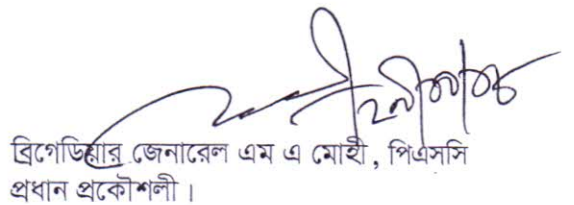 ব্রিগেডিয়ার জেনারেল এম এ মোহী, পিএসসি
প্রধান প্রকৌশলী।